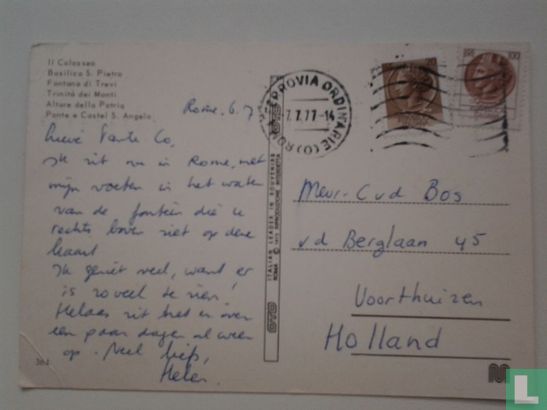 Il Colosseo
Basilica S. Pietro
Fontana di Trevi
Trinità dei Monti
Altare della Patria
Ponte e Castel S. Angelo
Rome. 6.7
Lieve Tante Co,
Ik zit nu in Rome, met
mijn voeten in het water
van de fontein die u
rechts boven ziet op deze
kaart
Ik geniet veel, want er
is zoveel te zien!
Helaas zit het er over
een paar dagen al weer
op. Veel liefs,
Helen.
304
ITALIAN LEADER IN SOUVENIRS
ROMA
RIPRODUZIONE INTERDETTA
FERROVIA ORDINARIE (O)
7.7.77-14
100
Mevr. C vd Bos
v d Berglaan 45
Voorthuizen
Holland
Catawiki